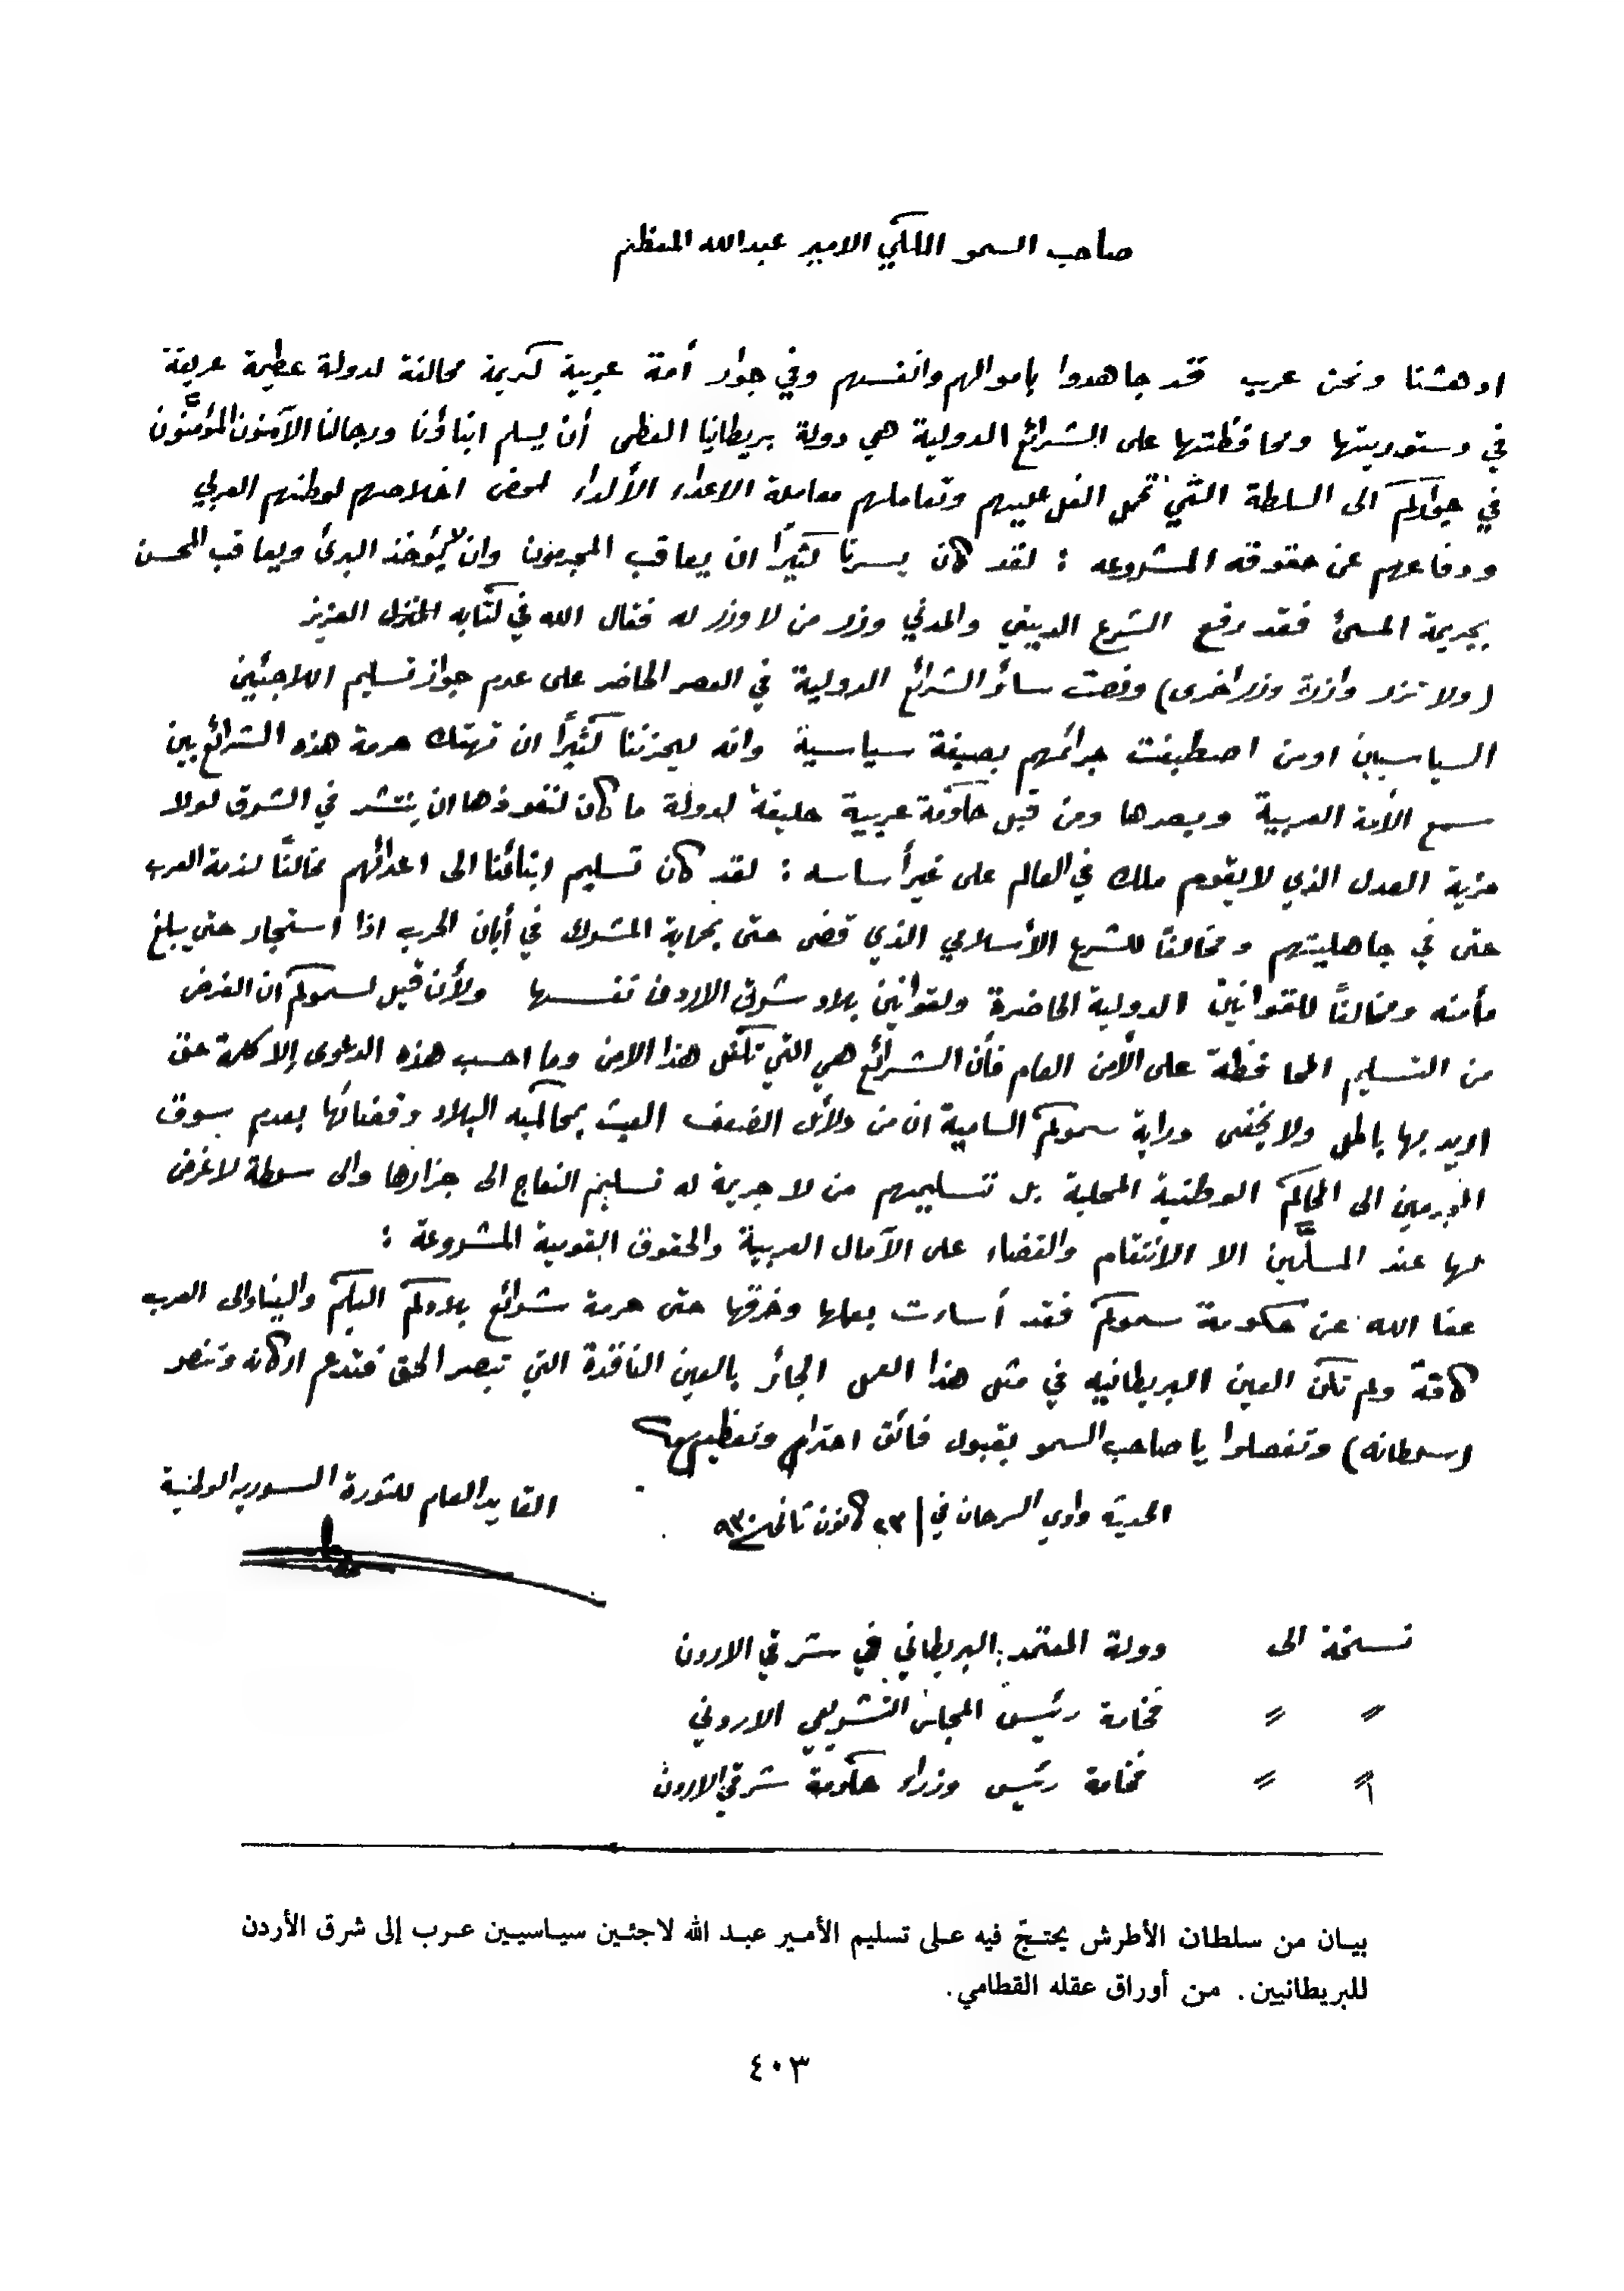 صاحب السمو الملكي الامير عبدالله المعظم
ادهشنا ونحن عرب قد جاهدوا باموالهم وانفسهم وفي جوار أمة عربية كريمة محالفة لدولة عظيمة عريقة
في دستوريتها ومحافظتها على الشرائع الدولية هي دولة بريطانيا العظمى أن يسلم ابناؤنا ورجالنا الآمنون المؤمَّنون
في جواركم الى السلطة التي تحمل الغل عليهم وتعاملهم معاملة الاعداء الألداء لمحض اخلاصهم لوطنهم العربي
ودفاعهم عن حقوقه المشروعه : لقد كان يسرنا كثيراً ان يعاقب المجرمون وان لا يؤخذ البرئ ويعاقب المحسن
بجريمة المسئ فقد رفع الشرع الديني والمدني وزر من لا وزر له فقال الله في كتابه المنزل العزيز
(ولا تزر وازرة وزر اخرى) ونصت سائر الشرائع الدولية في العصر الحاضر على عدم جواز تسليم اللاجئين
السياسيين اومن اصطبغت جرائمهم بصبغة سياسية وانه ليحزننا كثيراً ان تهتك حرمة هذه الشرائع بين
سمع الأمة العربية وبصرها ومن قبل حكومة عربية حليفة لدولة ما كان لنفوذها ان ينتشر في الشرق لولا
مزية العدل الذي لا يقوم ملك في العالم على غير أساسه : لقد كان تسليم ابنائنا الى اعدائهم مخالفاً لذمة العرب
حتى في جاهليتهم ومخالفاً للشرع الأسلامي الذي قضى حتى بحماية المشرك في أبان الحرب اذا استجار حتى يبلغ
مأمنه ومخالفاً للقوانين الدولية الحاضرة ولقوانين بلاد شرقي الاردن نفسها ولأن قيل لسموكم ان الغرض
من التسليم المحافظة على الأمن العام فأن الشرائع هي التي تكفل هذا الامن وما احسب هذه الدعوى إلا كلمة حق
اريد بها باطل ولا يخفى دراية سموكم السامية ان من دلائل الضعف العبث بمحاكم البلاد وقضائها بعدم سوق
المجرمين الى المحاكم الوطنية المحلية بل تسليمهم من لا جريمة له تسليم النعاج الى جزارها والى سلطة لاغرض
لها عند المسلَّمين الا الانتقام والقضاء على الآمال العربية والحقوق القومية المشروعة :
عفا الله عن حكومة سموكم فقد أساءت بعملها وخرقها حتى حرمة شرائع بلادكم اليكم والينا والى العرب
كافة ولم تكن العين البريطانيه في مثل هذا العمل الجائر بالعين الناقدة التي تبصر الحق فتدعم اركانه وتنصر
(سلطانه) وتفضلوا يا صاحب السمو بقبول فائق احترامي وتعظيمي
القايد العام للثورة السوريه الوطنية
الحديثة وادي السرحان في | ٢٣ كانون ثاني سنة ٩٣٠
نسخة الى دولة المعتمد البريطاني في شرقي الاردن
〃 〃 فخامة رئيس المجلس التشريعي الاردني
〃 〃 فخامة رئيس وزراء حكومة شرقي الاردن
بيـان من سلطان الأطرش يحتجّ فيه على تسليم الأمير عبد الله لاجئين سياسيين عرب إلى شرق الأردن
للبريطانيين. من أوراق عقله القطامي.
٤٠٣